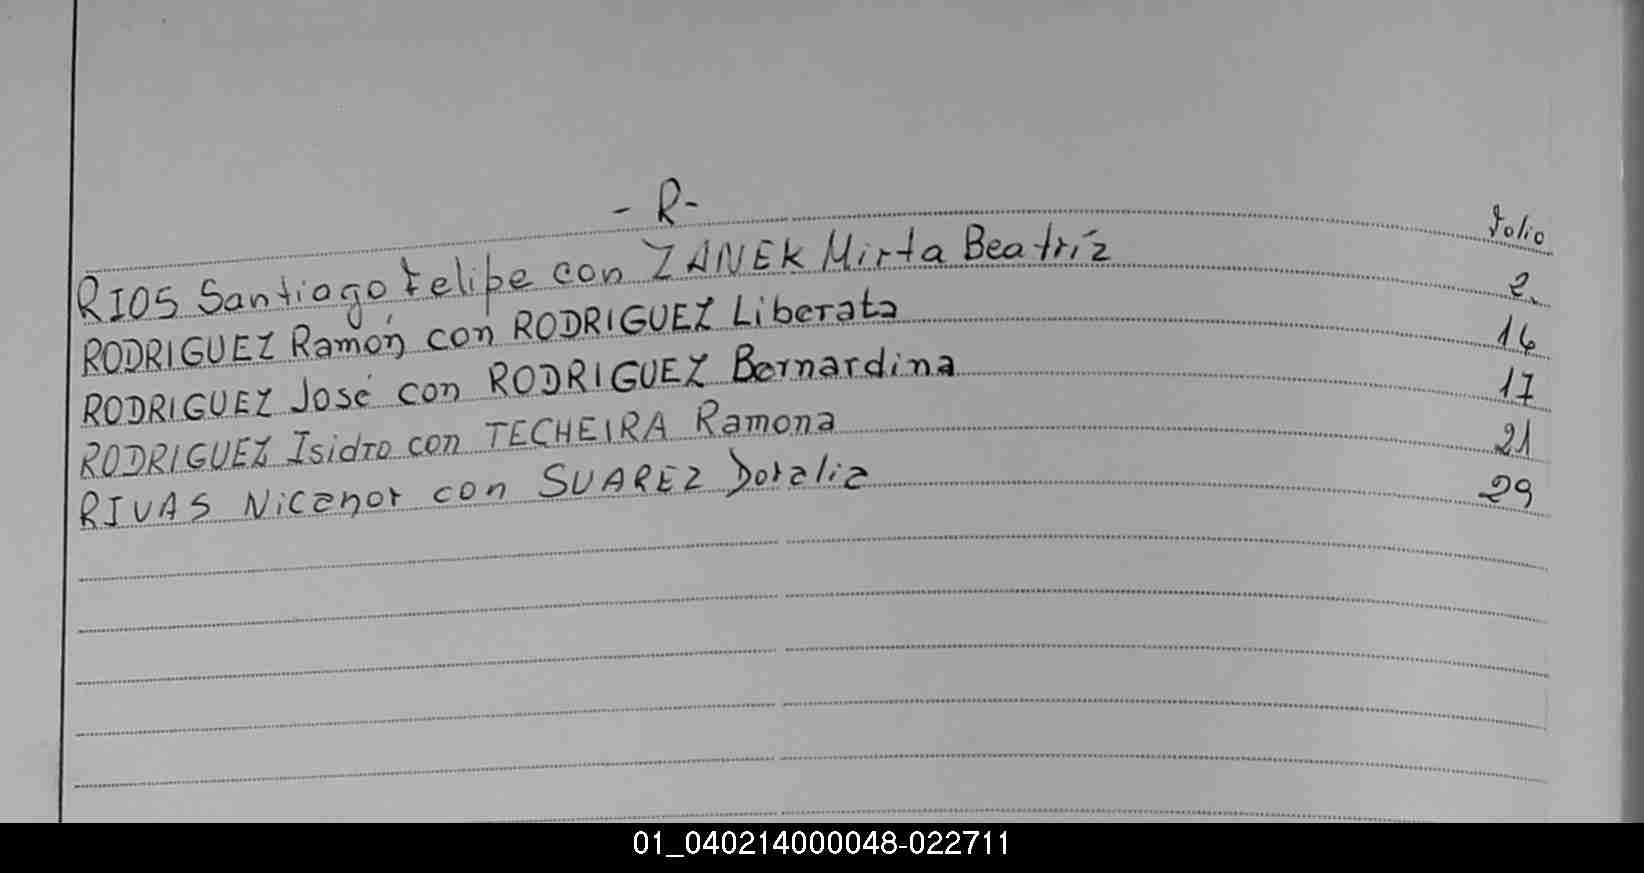 - R -
Folio
RIOS Santiago Felipe con ZANEK Mirta Beatríz 2
RODRIGUEZ Ramón con RODRIGUEZ Liberata 16
RODRIGUEZ José con RODRIGUEZ Bernardina 17
RODRIGUEZ Isidro con TECHEIRA Ramona 21
RIVAS Nicanor con SUAREZ Doralia 29
01_040214000048-022711